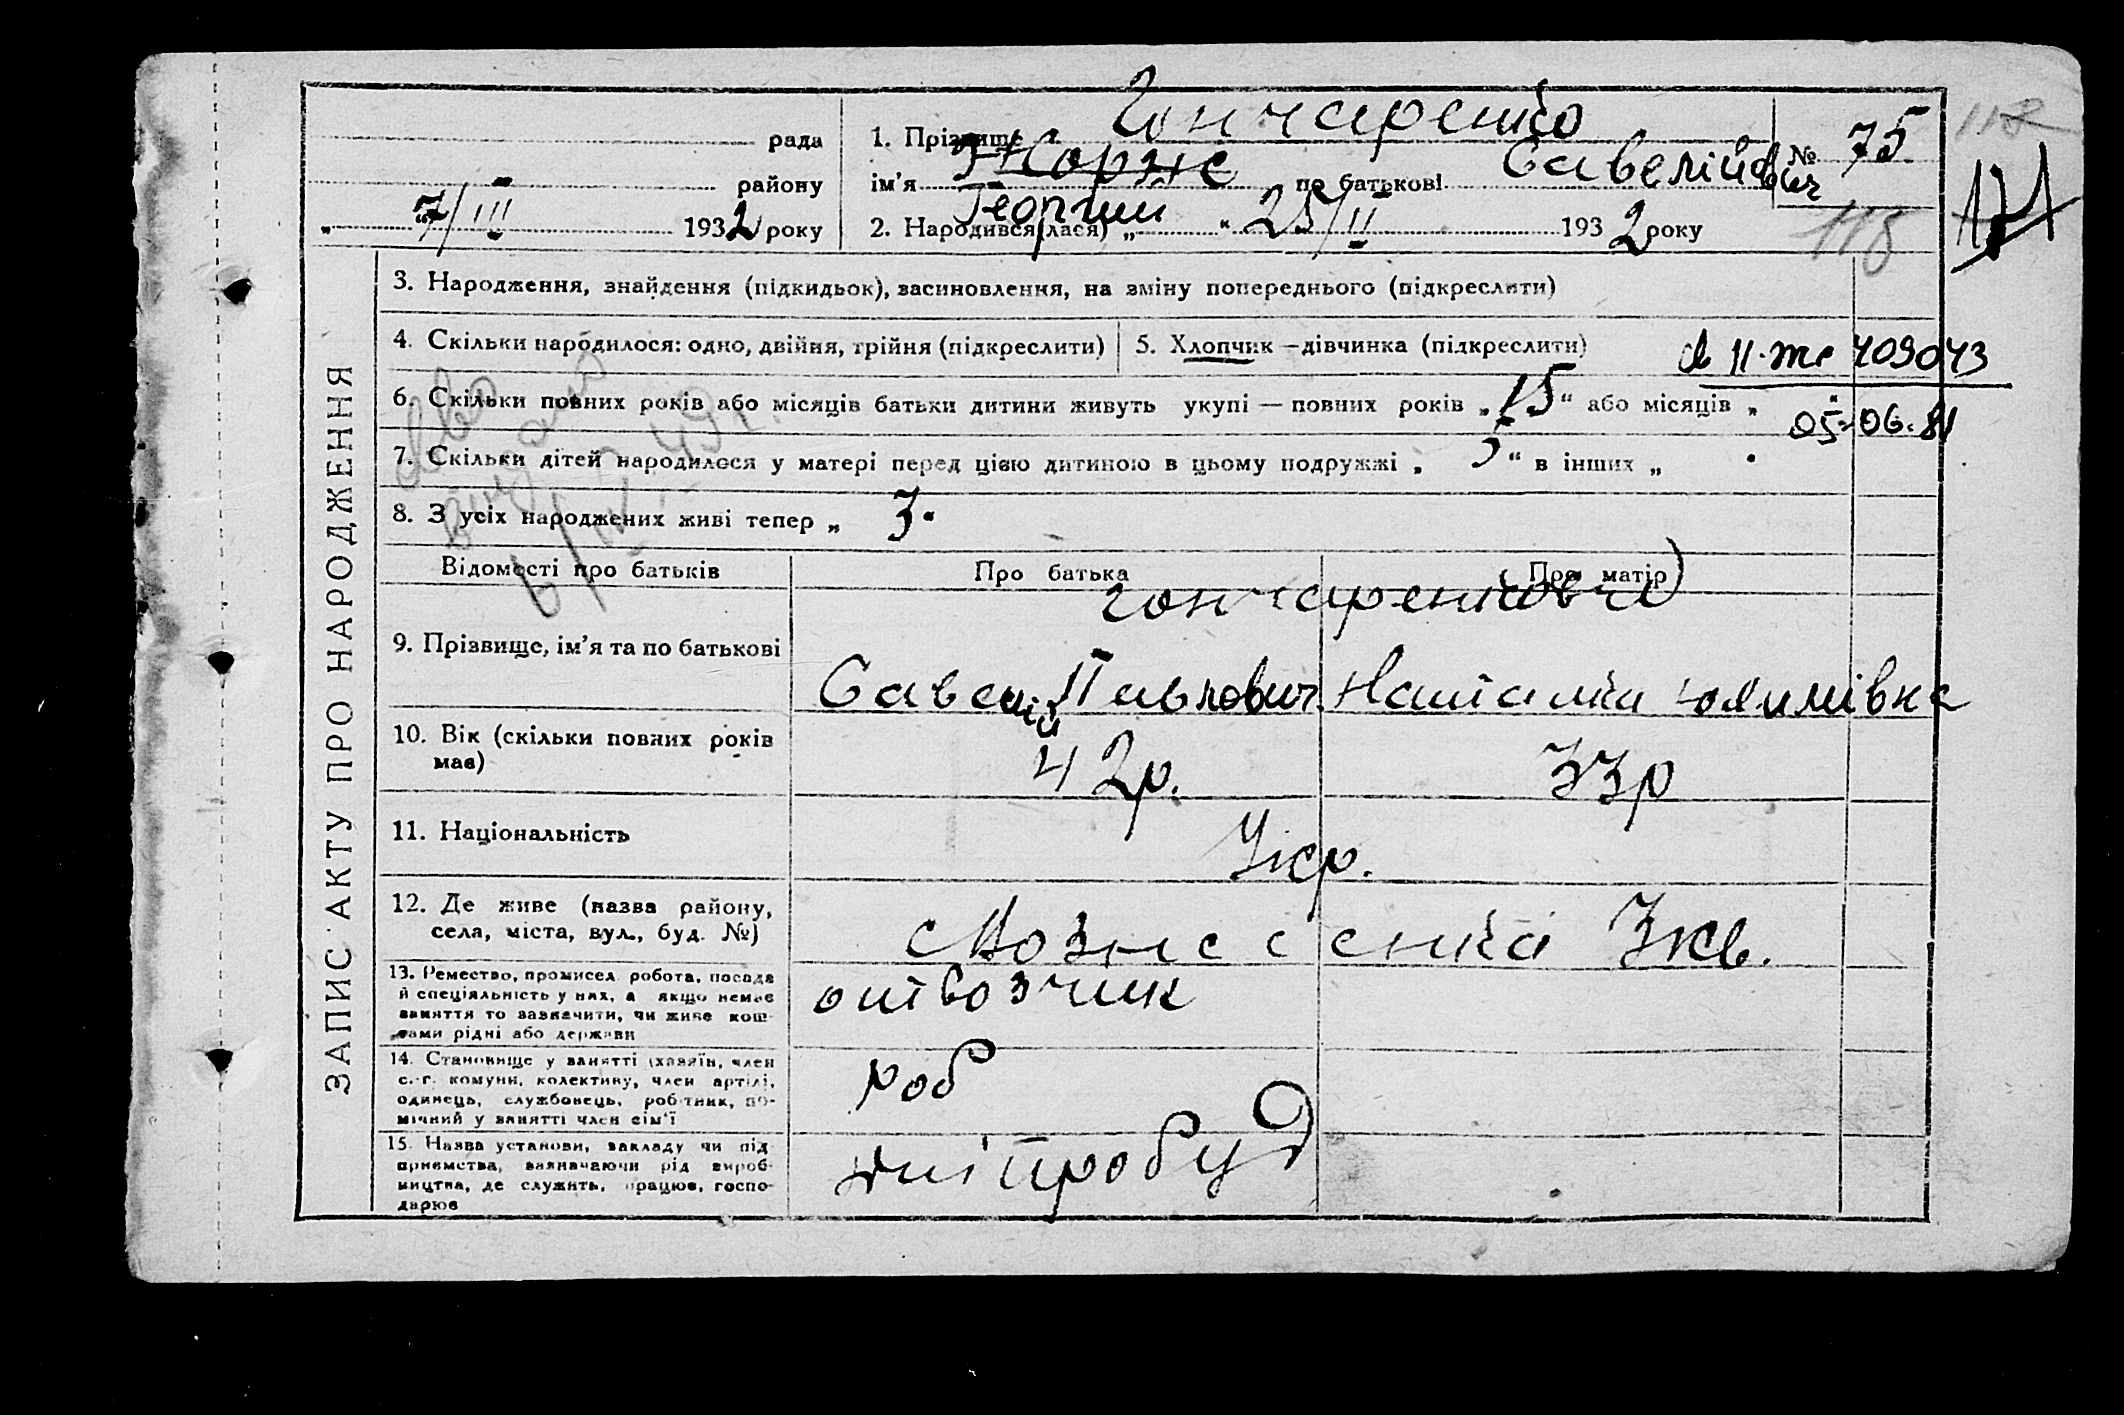 ЗАПИС АКТУ ПРО НАРОДЖЕННЯ
рада
району
„ 7/III 1932 року
1. Прізвище Гончаренко
ім’я Жорж по батькові Савелійович
Георгий
2. Народився(лася) „ “ 25/II 1932 року
№ 75
118
118
3. Народження, знайдення (підкидьок), засиновлення, на зміну попереднього (підкреслити)
4. Скільки народилося: одно, двійня, трійня (підкреслити)
5. Хлопчик – дівчинка (підкреслити)
409043
05.06.81
6. Скільки повних років або місяців батьки дитини живуть укупі — повних років „ 15 “ або місяців „
7. Скільки дітей народилося у матері перед цією дитиною в цьому подружжі „ 5 “ в інших „
8. З усіх народжених живі тепер „ 3.
Відомості про батьків
Про батька
Про матір
9. Прізвище, ім’я та по батькові
Савелій Павлович Наталка Юхимівна
10. Вік (скільки повних років має)
42р. 33р
11. Національність
Укр.
12. Де живе (назва району, села, міста, вул., буд. №)
с Вознесенка
13. Ремество, промисел, робота, посада й спеціяльність у них, а якщо немає заняття то зазначити, чи живе коштами рідні або держави
14. Становище у занятті (хазяїн, член с.-г. комуни, колективу, член артілі, одинець, службовець, робітник, помічний у занятті член сім’ї
роб
15. Назва установи, закладу чи підприємства, зазначаючи рід виробництва, де служить, працює, господарює
Дніпробуд